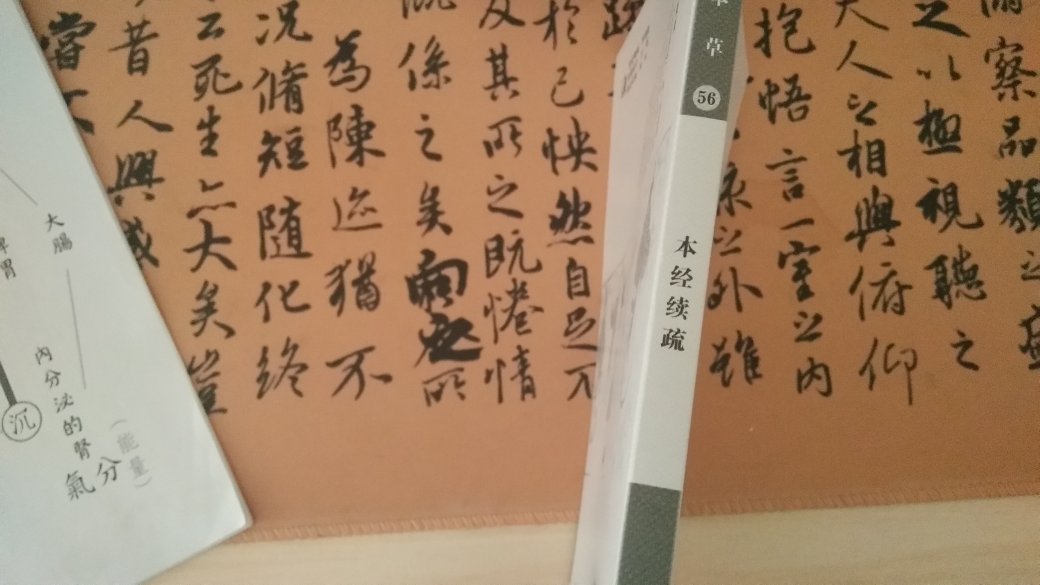 察品類之盛
之以極視聽之
夫人之相與俯仰
抱悟言一室之內
之外雖
草
56
本经续疏
於己怏然自足不
及其所之既惓情
係之矣向之所
為陳迹猶不
況脩短隨化終
云死生亦大矣豈
昔人興感
大腸
胃
內分泌的腎
氣分
(能量)
沉